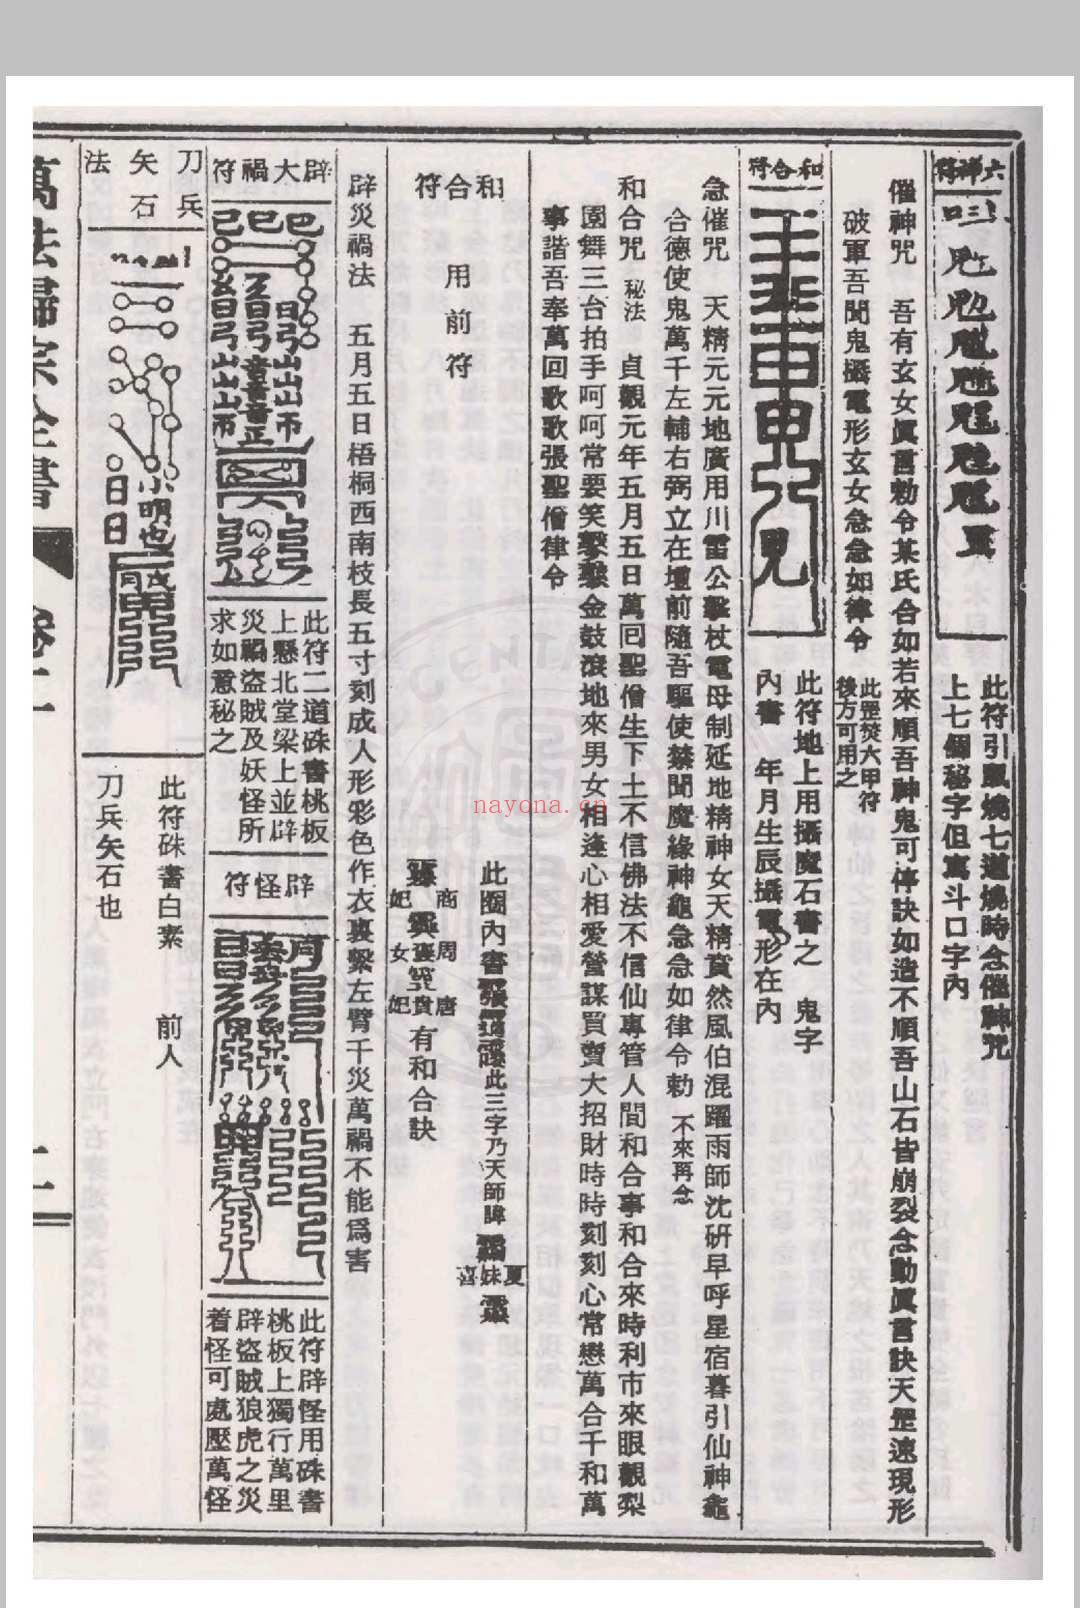 六神符
此符引風燒七道燒時念催神咒
上七個秘字但寫斗口字內
催神咒　吾有玄女眞言勅令某氏合如若來順吾神鬼可停訣如造不順吾山石皆崩裂念動眞言訣天罡速現形
破軍吾聞鬼攝電形玄女急急如律令
此罡焚六甲符
後方可用之
和合符
此符地上用攝魔石書之　鬼字
內書　年月生辰攝電形在內
急催咒　天精元元地廣用川雷公擊杖電母制延地精神女天精賁然風伯混躍雨師沈研早呼星宿暮引仙神龜
合德使鬼萬千左輔右弼立在壇前隨吾驅使禁聞魔緣神龜急急如律令勅　不來再念
和合咒　秘法　貞觀元年五月五日萬回聖僧生下土不信佛法不信仙專管人間和合事和合來時利市來眼觀梨
園舞三台拍手呵呵常要笑擊金鼓滾地來男女相逢心相愛營謀買賣大招財時時刻刻心常戀萬合千和萬
事諧吾奉萬回歌歌張聖僧律令
和合符　用前符
此圈內書
此三字乃天師諱
夏妹喜
商妲
周褒女
唐貴妃
有和合訣
辟災禍法　五月五日梧桐西南枝長五寸刻成人形彩色作衣裏繫左臂千災萬禍不能爲害
辟大禍符
此符二道硃書桃板
上懸北堂梁上並辟
災禍盜賊及妖怪所
求如意秘之
辟怪符
此符辟怪用硃書
桃板上獨行萬里
辟盜賊狼虎之災
着怪可處壓萬怪
刀兵
矢石
法
此符硃書白素　前人
刀兵矢石也
萬法歸宗全書
卷二
nayona.cn